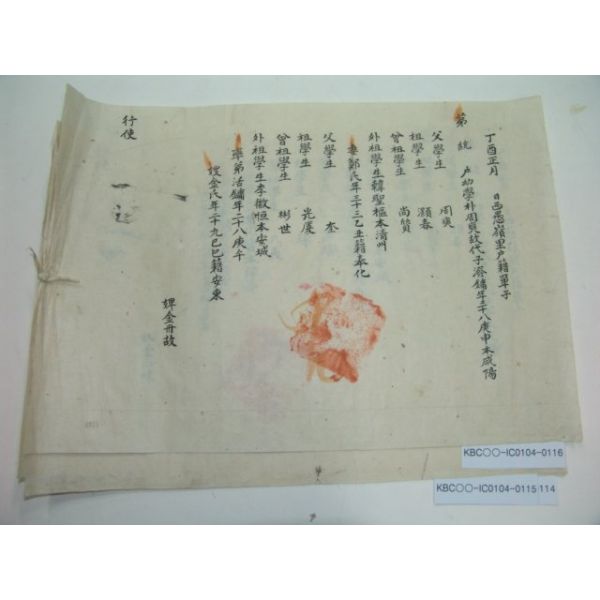 丁酉正月 日西愚嶺里戶籍單子
第 統 戶幼學朴周奭故代子 鏞年三十八庚申本咸陽
父學生 周奭
祖學生 灝春
曾祖學生 尚質
外祖學生韓聖樞本淸州
妻鄭氏年三十三乙丑籍奉化
父學生 奎
祖學生 光履
曾祖學生 彬世
外祖學生李徽恒本安城
率弟活鏞年二十八庚午
嫂金氏年二十九己巳籍安東
婢金冊故
行使
KBC○○-IC0104-0116
KBC○○-IC0104-0115
114